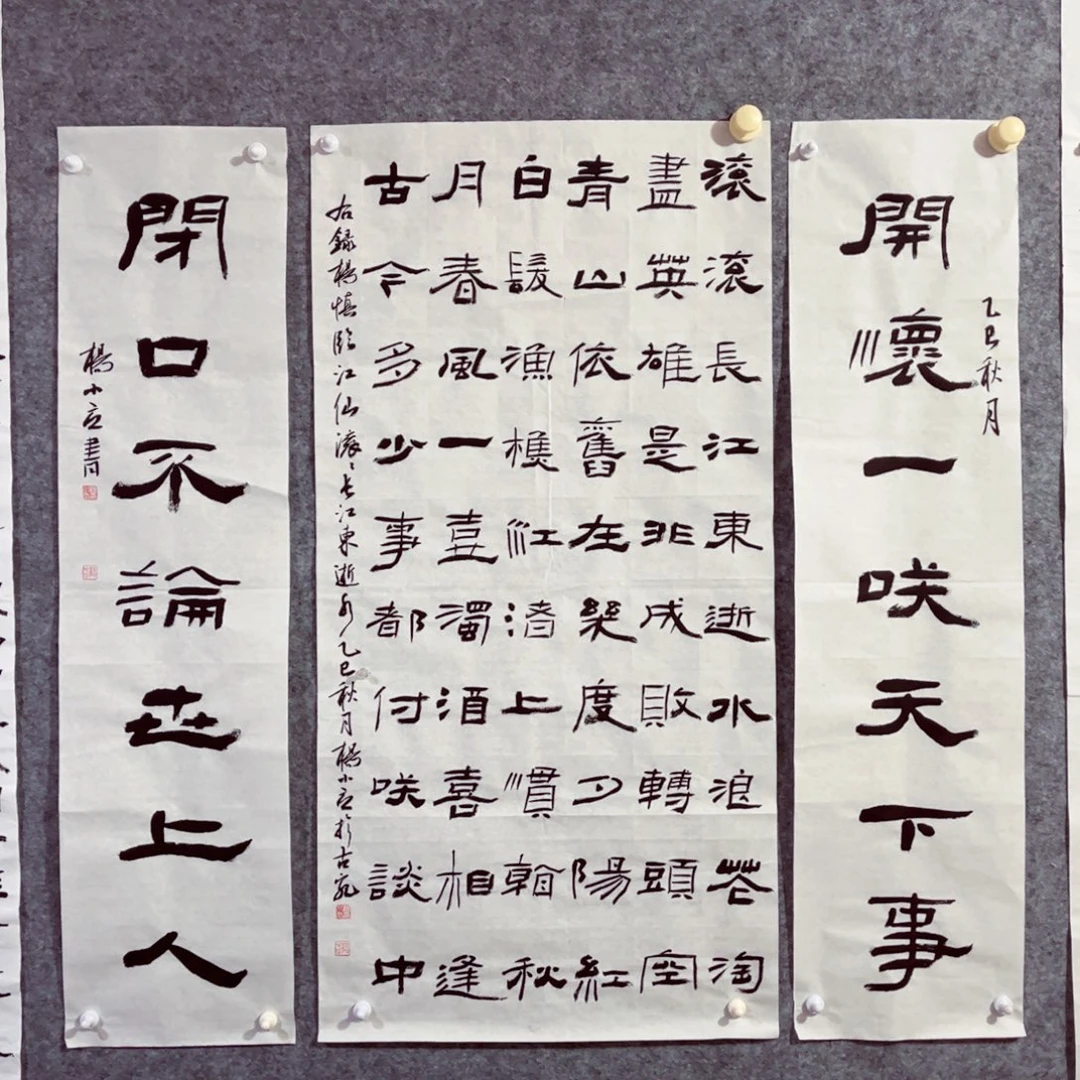 乙巳秋月
開懷一咲天下事
滾滾長江東逝水浪花淘
盡英雄是非成敗轉頭空
青山依舊在幾度夕陽紅
白髮漁樵江渚上慣看秋
月春風一壺濁酒喜相逢
古今多少事都付咲談中
右錄楊慎臨江仙滾々長江東逝水乙巳秋月楊小於古宛
閉口不論世上人
楊小書